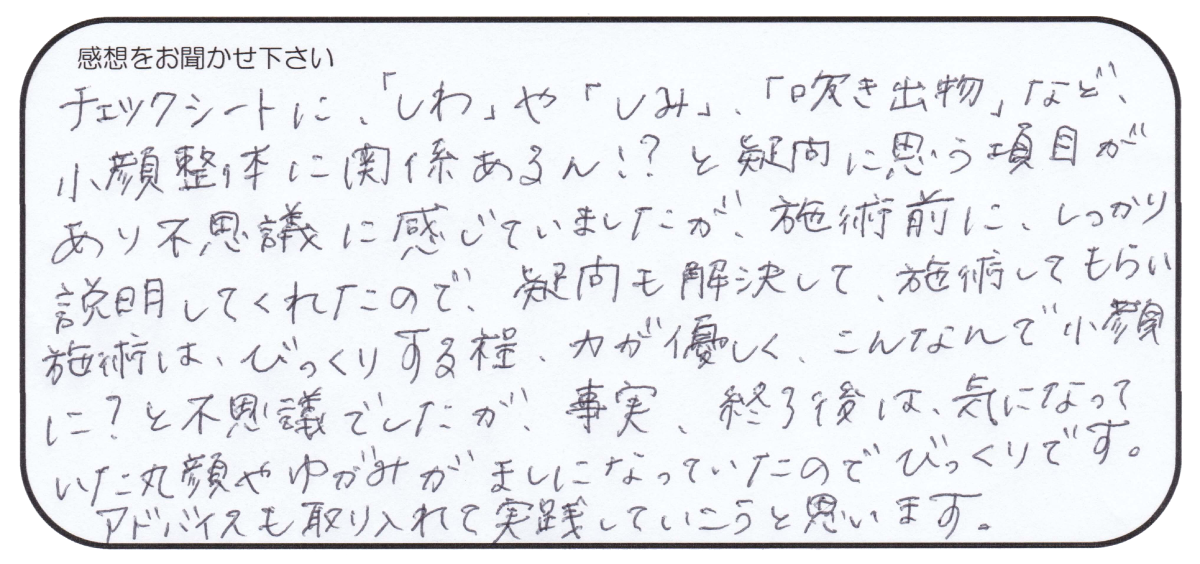 感想をお聞かせ下さい
チェックシートに、「しわ」や「しみ」、「吹き出物」など、
小顔整体に関係あるん!?と疑問に思う項目が
あり不思議に感じていましたが、施術前に、しっかり
説明してくれたので、疑問も解決して、施術してもらい
施術は、びっくりする程、力が優しく、こんなんで小顔
に?と不思議でしたが、事実、終了後は、気になって
いた丸顔やゆがみがましになっていたのでびっくりです。
アドバイスも取り入れて実践していこうと思います。